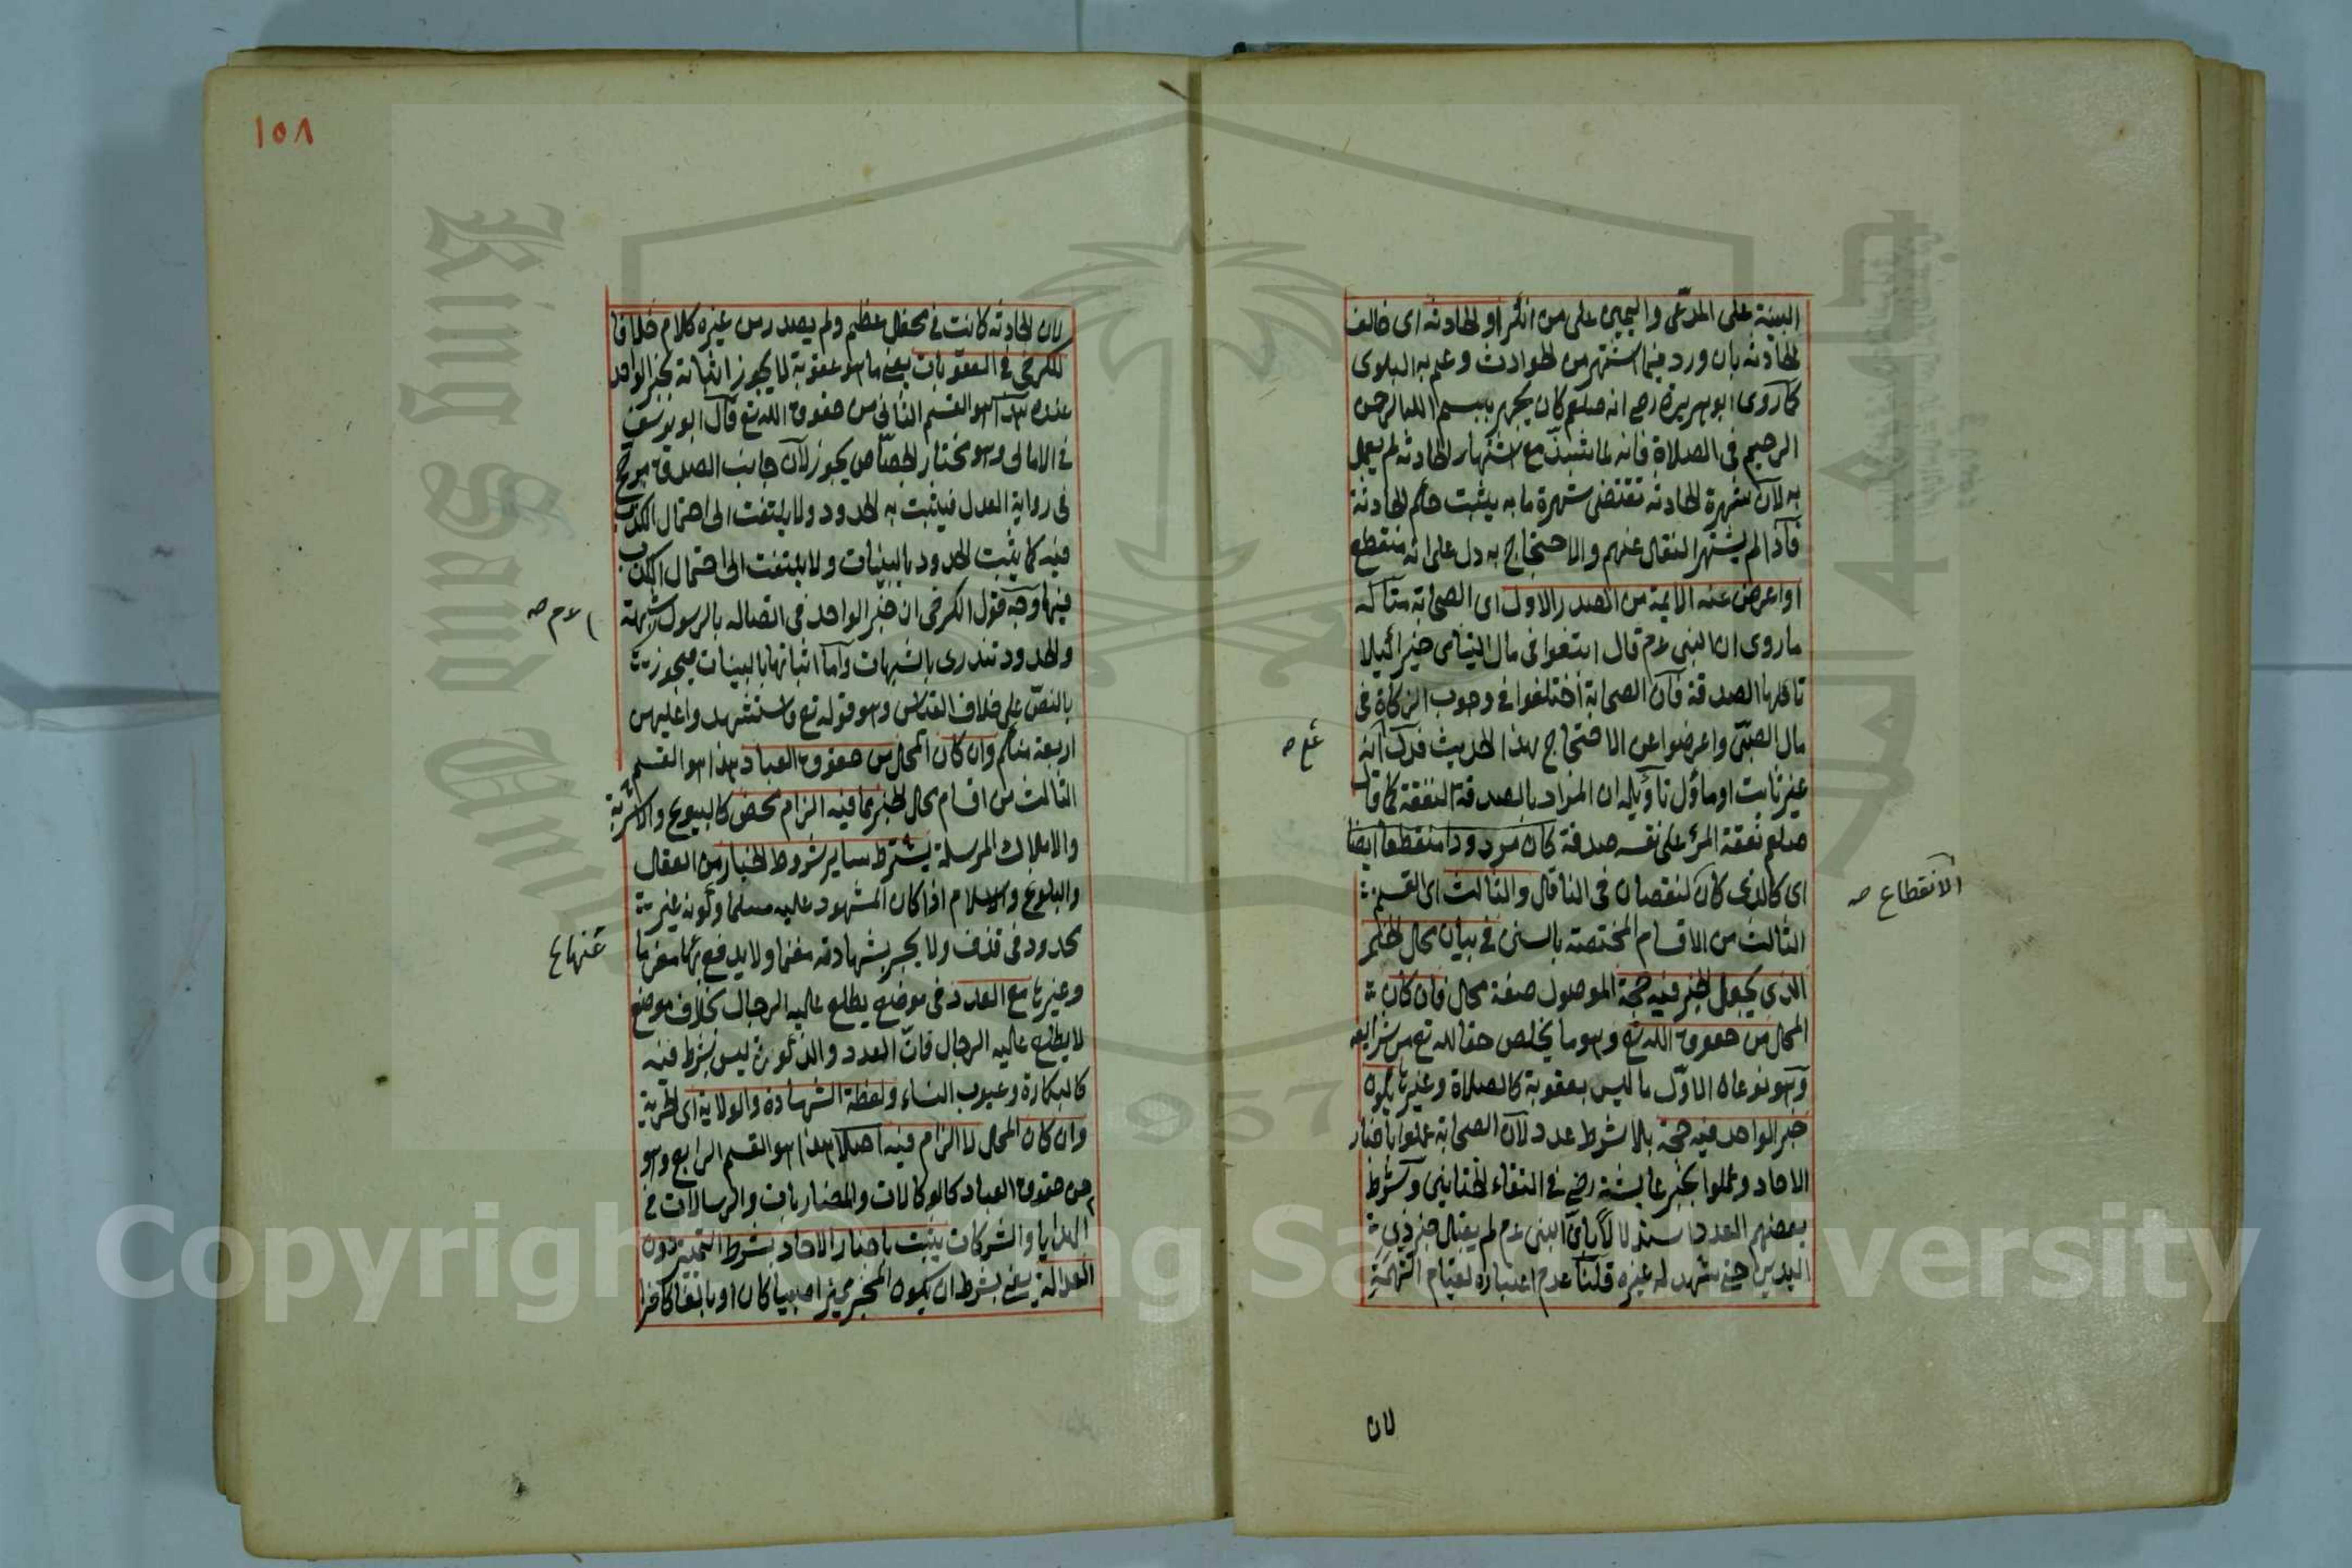 البينة على المدّعى واليمين على من انكر او الحادثة اى خالف
الحادثة بان ورد فيما اشتهر من الحوادث وعم به البلوى
كما روى ابو هريرة رضى انه صلعم كان يجهر ببسم الله الرحمن
الرحيم فى الصلاة فانه لما شذ مع اشتهار الحادثة لم يعمل
به لان شهرة الحادثة تقتضى شهرة ما به يثبت حكم الحادثة
فاذا لم يشتهر النقل عنهم والاحتجاج به دل على انه منقطع
او اعرض عنه الايمة من الصدر الاول اى الصحابة مثاله
ما روى ان النبى عم قال ابتغوا فى مال اليتامى خيرا كيلا
تاكلها الصدقة فان الصحابة اختلفوا فى وجوب الزكاة فى
مال الصبىّ واعرضوا عن الاحتجاج بهذا الحديث فدل انه
غير ثابت او مأول تأويله ان المراد بالصدقة النفقة كما قال
صلعم نفقة المرء على نفسه صدقة كان مردودا منقطعا ايضا
اى كالذى كان لنقصان فى الناقل والثالث اى القسم
الثالث من الاقسام المختصة بالسنن فى بيان محل الخبر
الذى يجعل الخبر فيه حجة الموصول صفة محل فان كان
المحل من حقوق الله تع وهو ما يخلص حقا لله تع من شرايعه
وهو نوعان الاوّل ما ليس بعقوبة كالصلاة وغيرها يكون
خبر الواحد فيه حجة بلا شرط عدد لان الصحابة عملوا باخبار
الاحاد وعملوا بخبر عايشة رضى فى التقاء الختانين وشرط
بعضهم العدد استدلالا بان النبى عم لم يقبل خبر ذى
اليدين حتى شهد له غيره قلنا عدم اعتباره لقيام التهمة
الانقطاع صه
لان
١٥٨
لان الحادثة كانت فى محفل عظيم ولم يصدر من غيره كلام خلافا
للكرخى فى العقوبات يعنى ما هو عقوبة لا يجوز اثباته بخبر الواحد
عنده هذا هو القسم الثانى من حقوق الله تع قال ابو يوسف
فى الامالى وهو مختار الجصّاص يجوز لان جانب الصدق مرجح
فى رواية العدل فيثبت به الحدود ولا يلتفت الى احتمال الكذب
فيه كما يثبت الحدود بالبينات ولا يلتفت الى احتمال الكذب
فيها وجه قول الكرخى ان خبر الواحد فى اتصاله بالرسول شبهة
والحدود تندرى بالشبهات واما اثباتها بالبينات فيجوز
بالنصّ على خلاف القياس وهو قوله تع فاستشهدوا عليهن
اربعة منكم وان كان المحل من حقوق العباد هذا هو القسم
الثالث من اقسام محل الخبر مما فيه الزام محض كالبيوع والاشربة
والاملاك المرسلة يشترط ساير شروط الخبار من العقل
والبلوغ والاسلام اذا كان المشهود عليه مسلما وكونه غير
محدود فى قذف ولا يجر بشهادته مغنما ولا يدفع بها مغرما
وغيرها مع العدد فى موضع يطلع عليه الرجال بخلاف موضع
لا يطلع عليه الرجال فان العدد والذكورة ليس بشرط فيه
كالبكارة وعيوب النساء ولفظة الشهادة والولاية اى الحرية
وان كان المحل لا الزام فيه اصلا هذا هو القسم الرابع وهو
من حقوق العباد كالوكالات والمضاربات والرسالات فى
الهدايا والشركات يثبت باخبار الاحاد بشرط التمييز دون
العدالة يعنى بشرط ان يكون المخبر مميزا صبيا كان او بالغا كافرا
عم صه